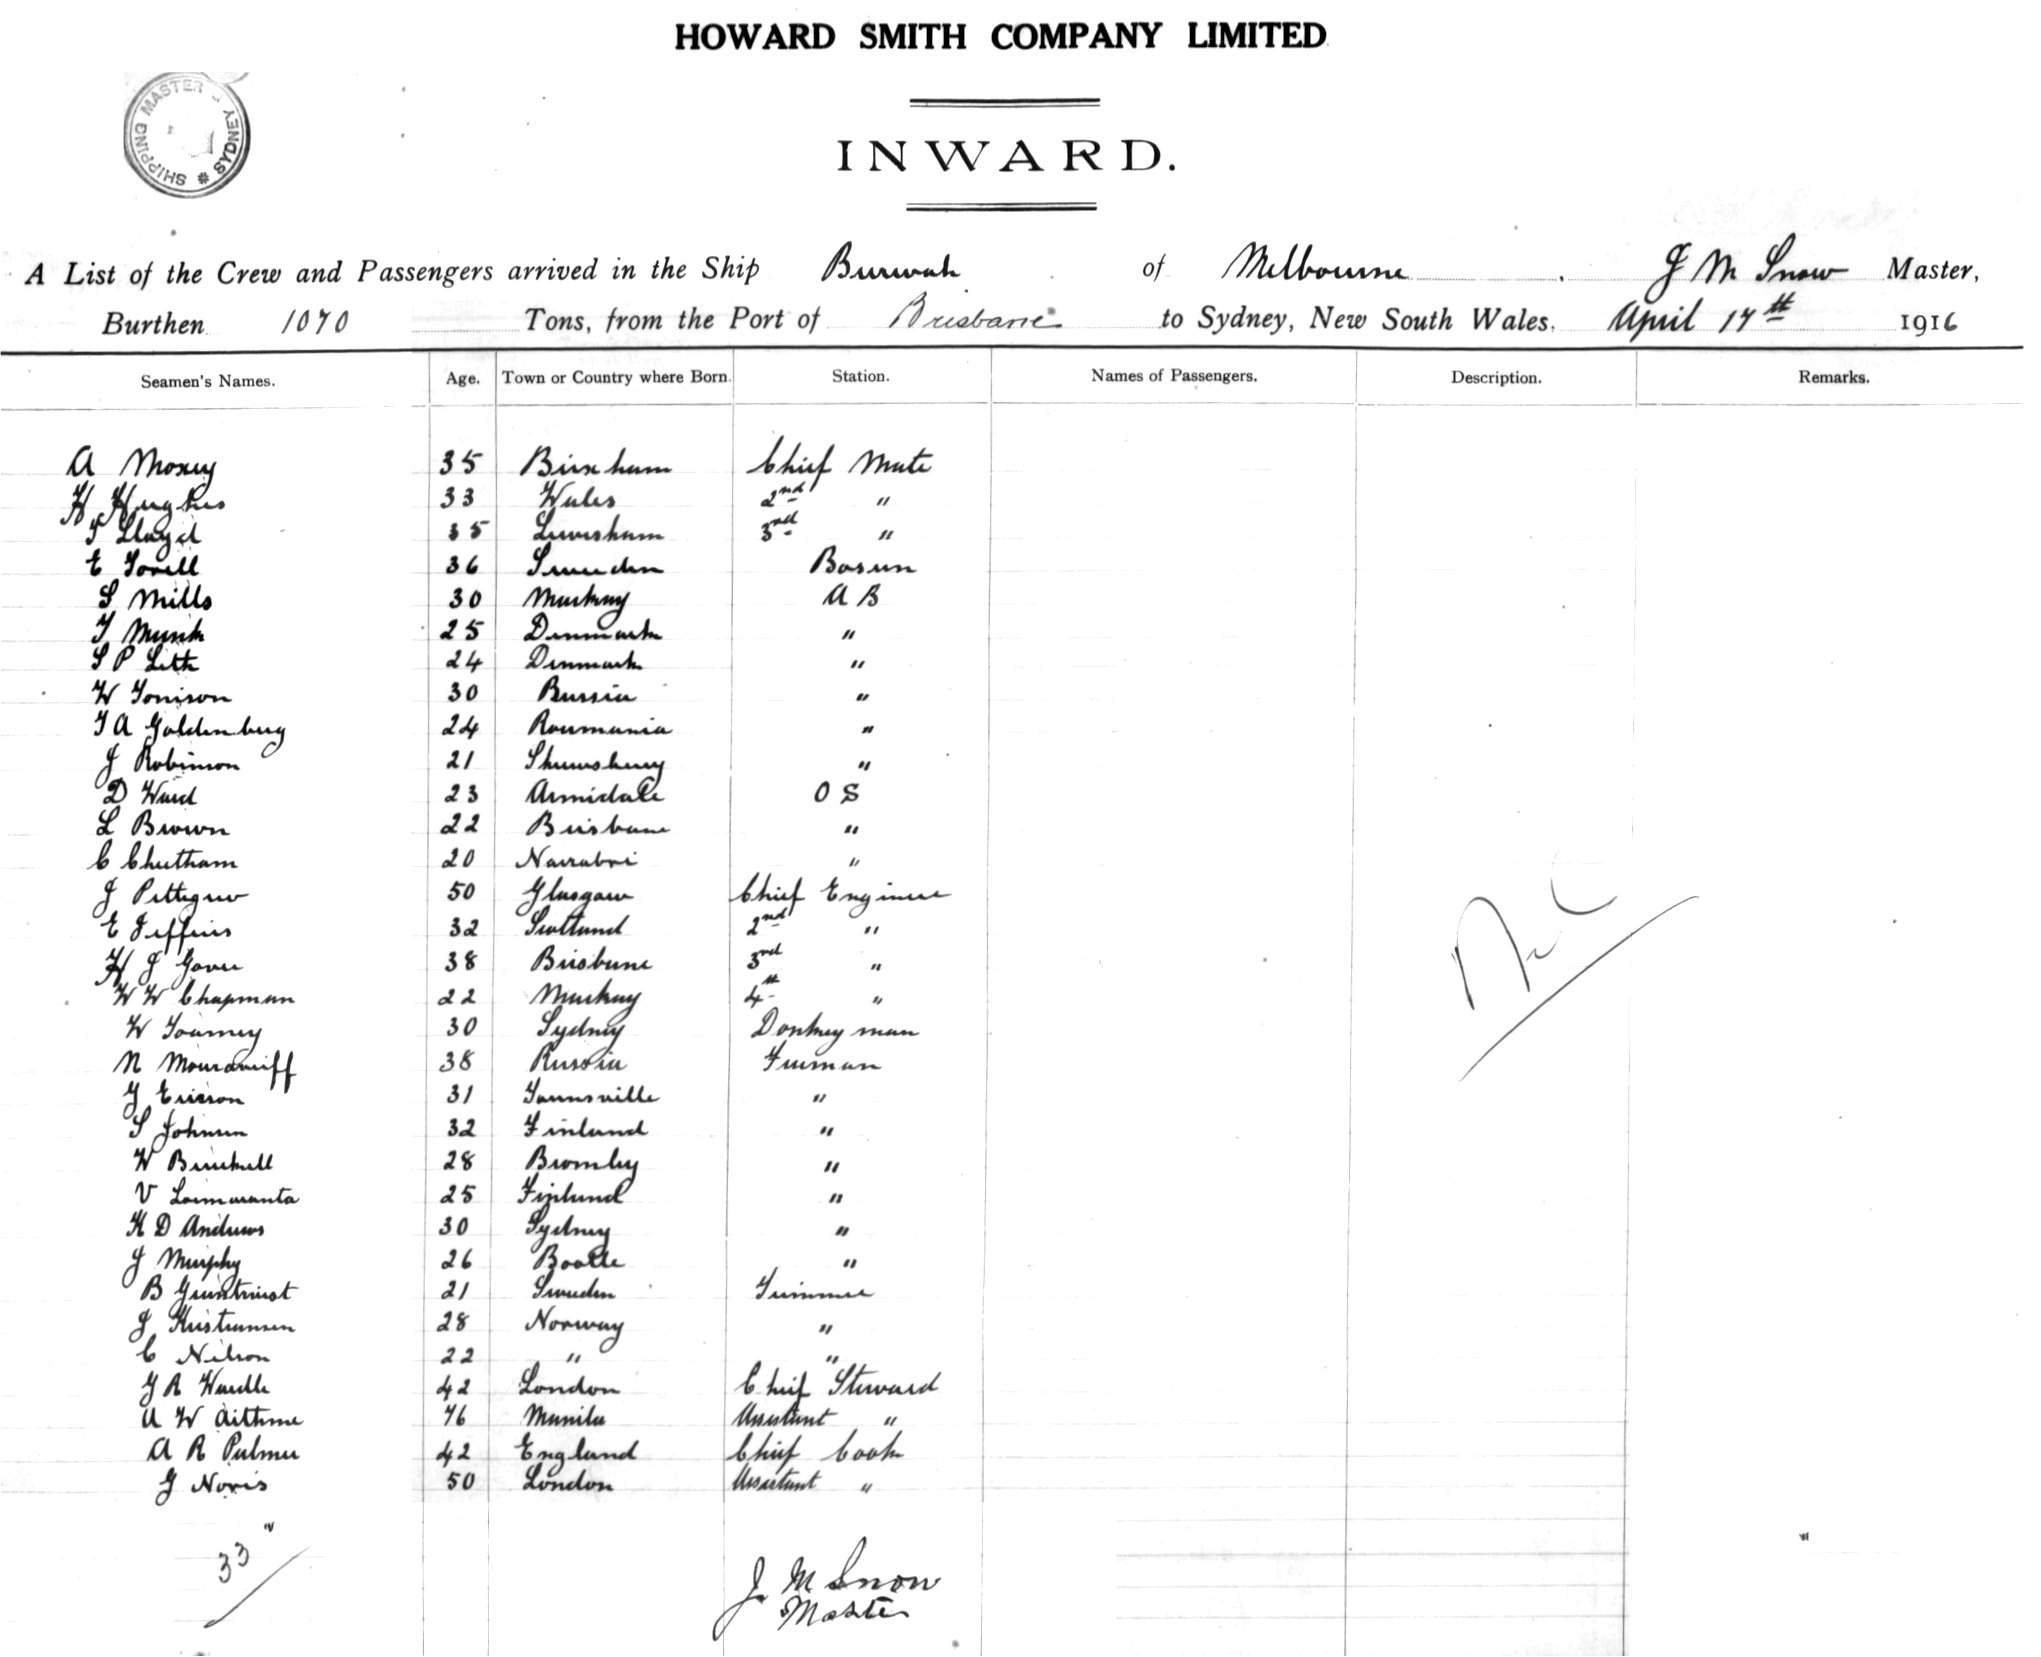 HOWARD SMITH COMPANY LIMITED
SHIPPING MASTER SYDNEY
INWARD.
A List of the Crew and Passengers arrived in the Ship Burwah of Melbourne J M Snow Master,
Burthen 1070 Tons, from the Port of Brisbane to Sydney, New South Wales, April 17th 1916
Seamen's Names. Age. Town or Country where Born. Station. Names of Passengers. Description. Remarks.
A Moxey 35 Brixham Chief Mate
H Hughes 33 Wales 2nd "
T Lloyd 35 Lewisham 3rd "
E Torell 36 Sweden Bosun
S Mills 30 Mackay A B
T Munk 25 Denmark "
S P Leth 24 Denmark "
W Tonison 30 Russia "
T A Goldenberg 24 Roumania "
J Robinson 21 Shrewsbury "
D Ward 23 Armidale O S
L Brown 22 Brisbane "
C Cheetham 20 Narrabri "
J Pettegrew 50 Glasgow Chief Engineer
E Jeffries 32 Scotland 2nd "
H J Gover 38 Brisbane 3rd "
W W Chapman 22 Mackay 4th "
W Tourney 30 Sydney Donkeyman
N 38 Russia Fireman
G Ericson 31 Townsville "
S Johnsen 32 Finland "
W 28 Bromley "
V Loimaranta 25 Finland "
H D Andrews 30 Sydney "
J Murphy 26 Bootle "
B 21 Sweden Trimmer
J Kristiansen 28 Norway "
C Nilson 22 " "
G R Wardle 42 London Chief Steward
A W 76 Manila Assistant "
A R Palmer 42 England Chief Cook
G Noris 50 London Assistant "
33
J M Snow
Master